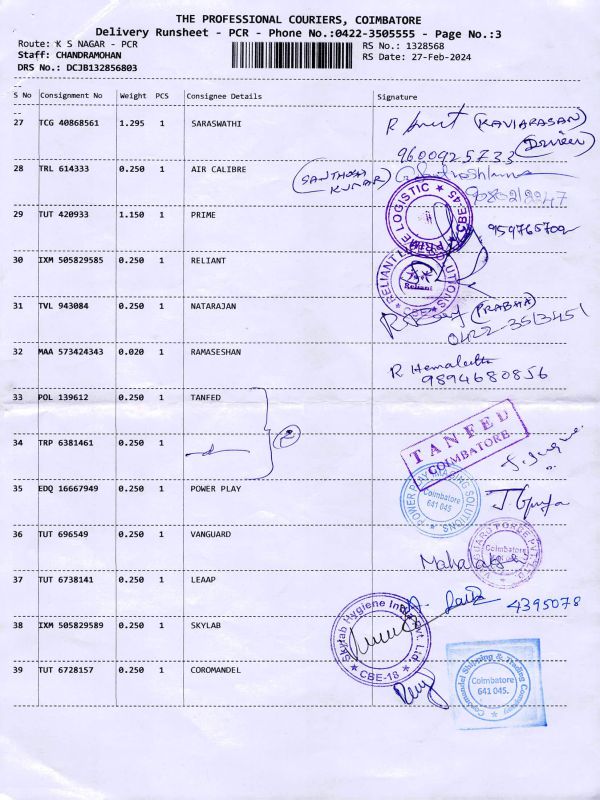 THE PROFESSIONAL COURIERS, COIMBATORE
Delivery Runsheet - PCR - Phone No.:0422-3505555 - Page No.:3
Route: K S NAGAR - PCR RS No.: 1328568
Staff: CHANDRAMOHAN RS Date: 27-Feb-2024
DRS No.: DCJB132856803
S No Consignment No Weight PCS Consignee Details Signature
27 TCG 40868561 1.295 1 SARASWATHI (KAVIARASAN)
(Driver)
9600925733
28 TRL 614333 0.250 1 AIR CALIBRE (SANTHOSH KUMAR)
29 TUT 420933 1.150 1 PRIME
PRIME LOGISTIC CBE-45
30 IXM 505829585 0.250 1 RELIANT
RELIANT SOLUTIONS Reliant CBE
31 TVL 943084 0.250 1 NATARAJAN (PRABHA)
0422-3513451
32 MAA 573424343 0.020 1 RAMASESHAN R Hemalatha
9894680856
33 POL 139612 0.250 1 TANFED
TANFED
COIMBATORE
34 TRP 6381461 0.250 1
35 EDQ 16667949 0.250 1 POWER PLAY
POWER PLAY SOLUTIONS Coimbatore 641 045
36 TUT 696549 0.250 1 VANGUARD
Coimbatore
37 TUT 6738141 0.250 1 LEAAP 4395078
38 IXM 505829589 0.250 1 SKYLAB
Skylab Hygiene Pvt. Ltd. CBE-18
39 TUT 6728157 0.250 1 COROMANDEL
Coromandel Shipping & Trading Company Coimbatore 641 045.